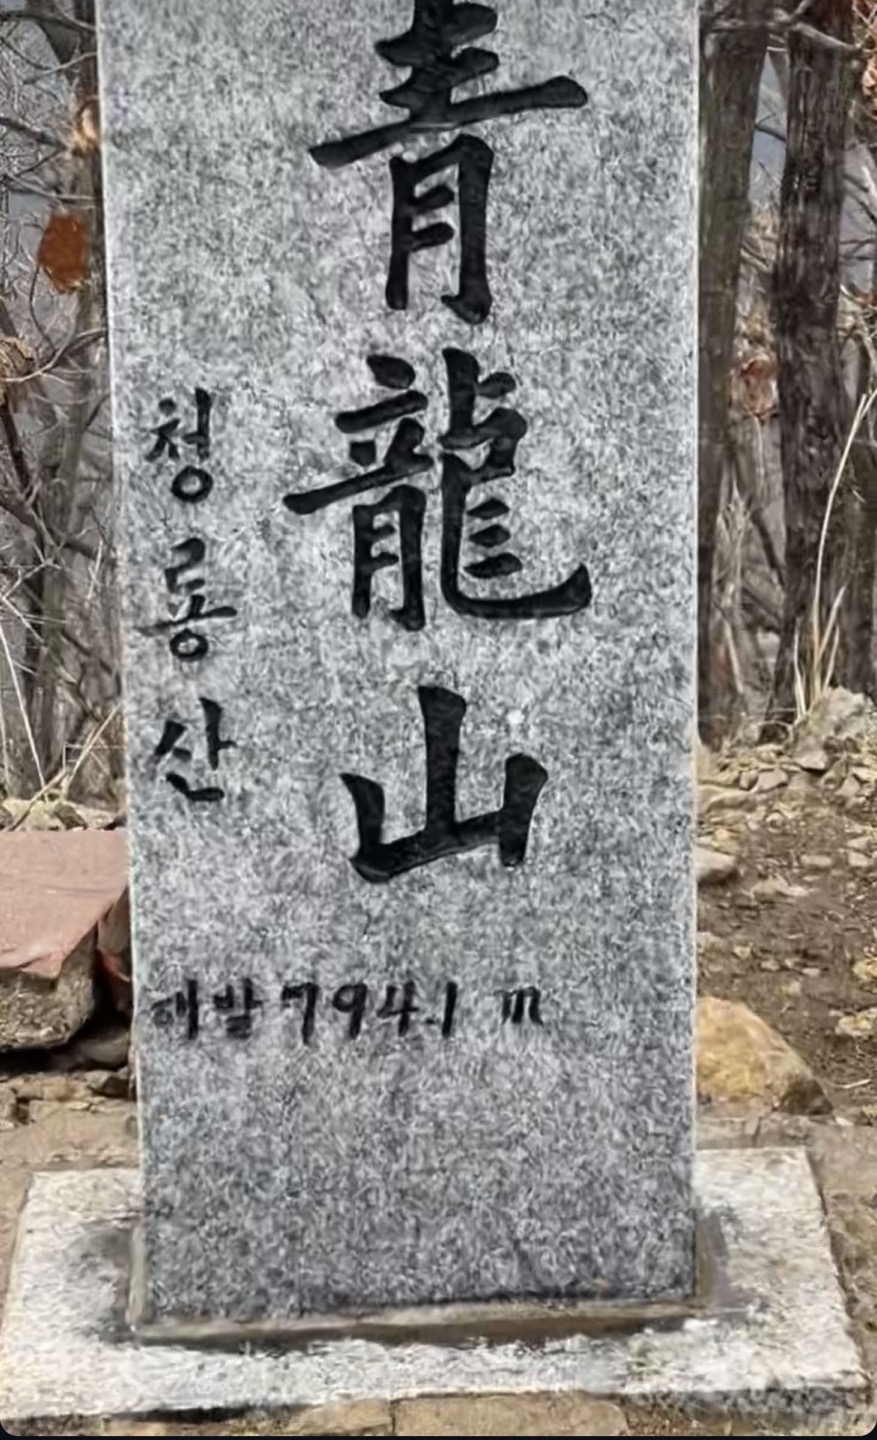 靑龍山
청룡산
해발 794.1 m